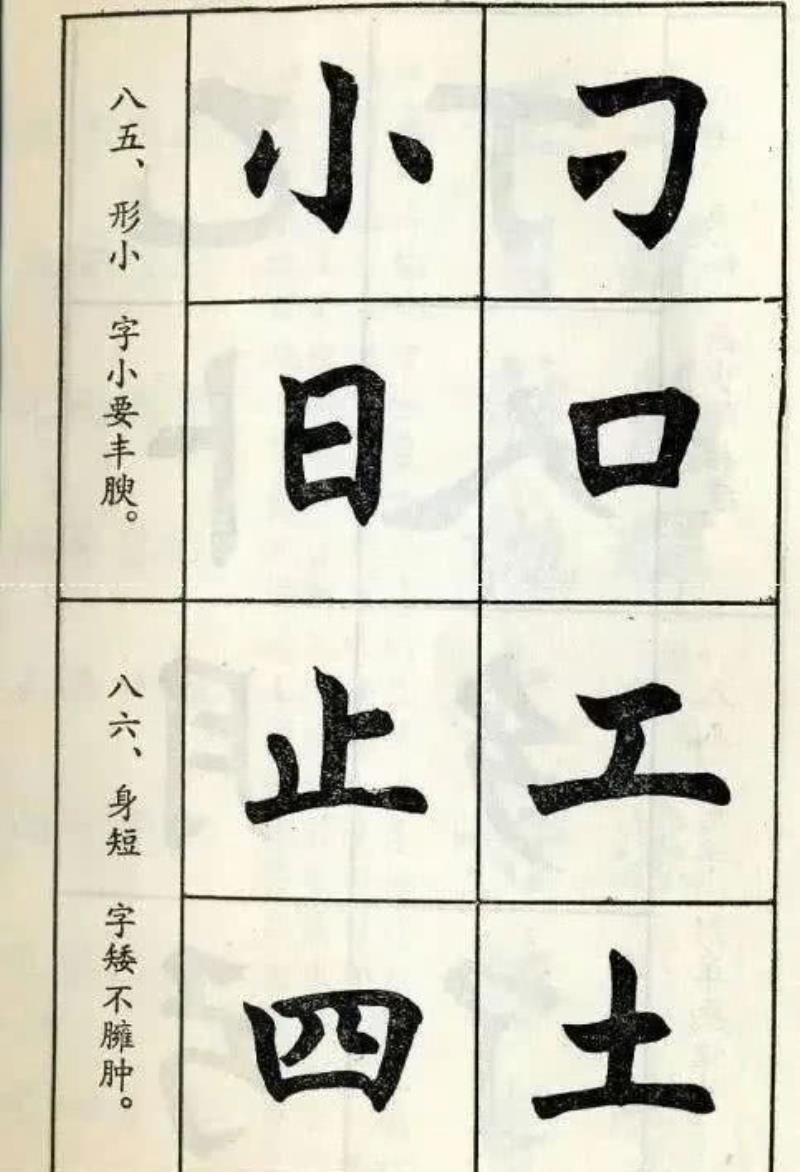 八五、形小 字小要丰腴。
小 刁
日 口
八六、身短 字矮不臃肿。
止 工
四 土